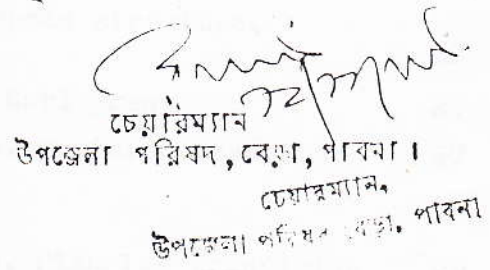 চেয়ারম্যান
উপজেলা পরিষদ, বেড়া, পাবনা।
চেয়ারম্যান,
উপজেলা পরিষদ বেড়া, পাবনা